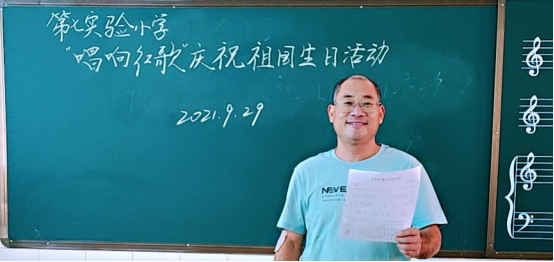 第七实验小学
“唱响红歌”庆祝祖国生日活动
2021.9.29
NEVE